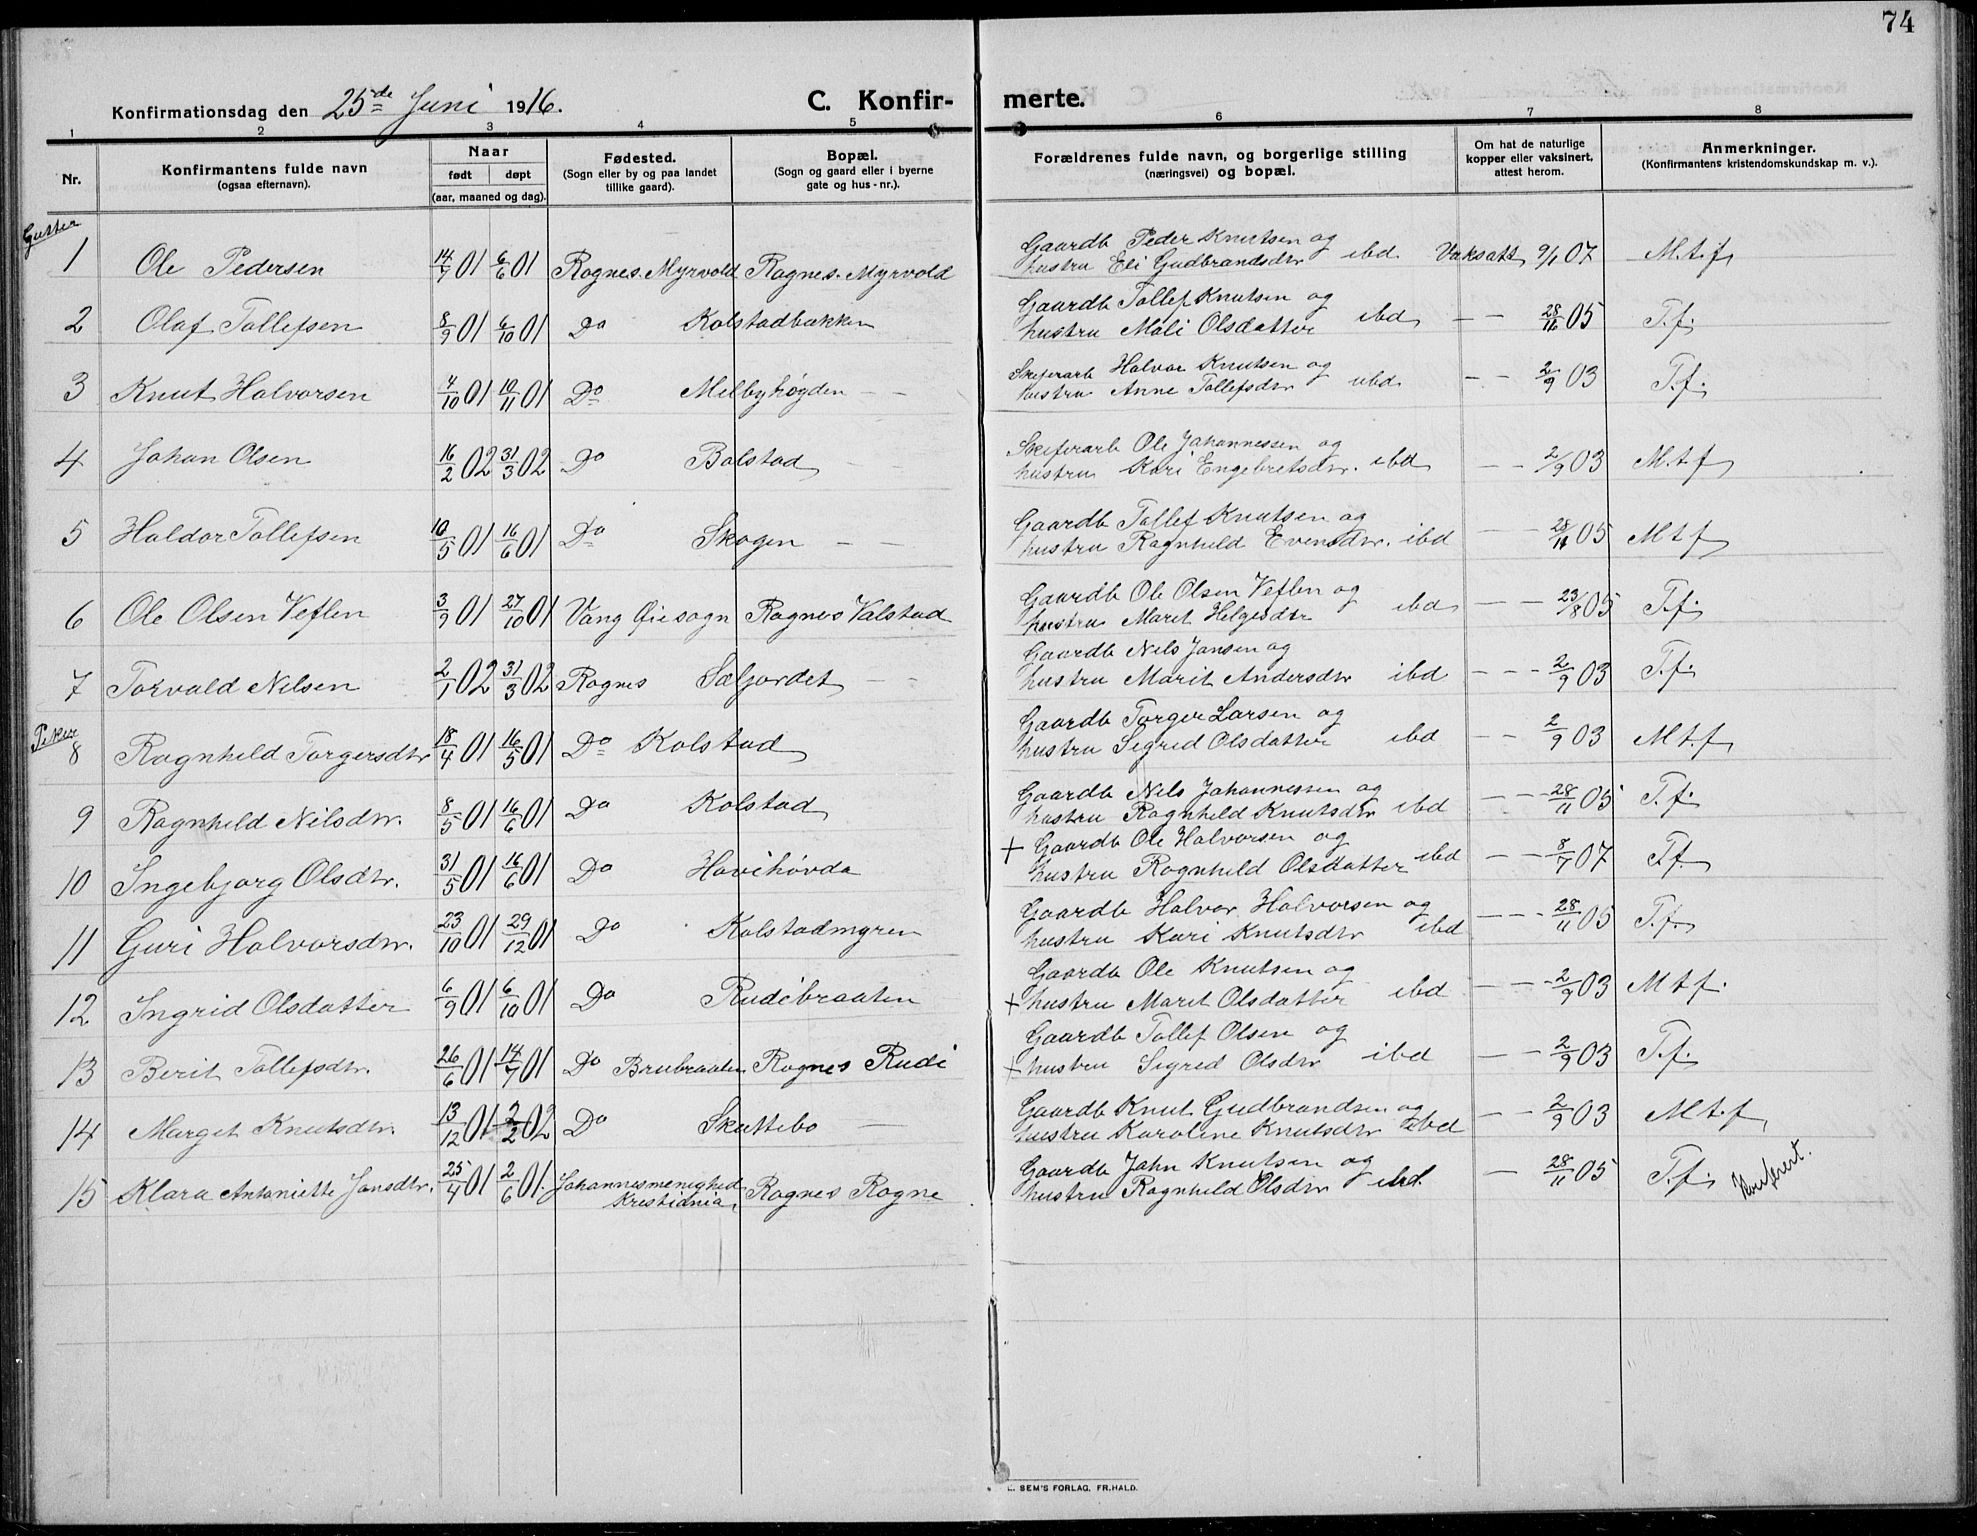 74
Konfirmationsdag den 25de Juni 1916.
C. Konfir- merte.
1 2 3 4 5 6 7 8
Nr. Konfirmantens fulde navn (ogsaa efternavn). Naar født døpt (aar, maaned og dag). Fødested. (Sogn eller by og paa landet tillike gaard). Bopæl. (Sogn og gaard eller i byerne gate og hus-nr.). Forældrenes fulde navn, og borgerlige stilling (næringsvei) og bopæl. Om hat de naturlige kopper eller vaksinert, attest herom. Anmerkninger. (Konfirmantens kristendomskundskap m. v.).
Gutter
1 Ole Pedersen 14/4 01 6/6 01 Rognes. Myrvold Rognes. Myrvold Gaardb Peder Knutsen og hustru Eli Gudbrandsdtr ibd. Vaksatt 9/1 07 M.t.f
2 Olaf Tollefsen 8/9 01 6/10 01 Do Kolstadbakken Gaardb Tollef Knutsen og hustru Mali Olsdatter ibd – – 28/11 05 T.f.
3 Knut Halvorsen 4/10 01 10/11 01 Do Melbyhøgden – – Skiferarb Halvor Knutsen og hustru Anne Tollefsdtr ibd. – – 2/9 03 T.f.
4 Johan Olsen 16/2 02 31/3 02 Do Bolstad – Skiferarb Ole Johannessen og hustru Kari Engebretsdtr. ibd – – 2/9 03 M.t.f
5 Haldor Tollefsen 10/5 01 16/6 01 Do Skogen – – Gaardb Tollef Knutsen og hustru Ragnhild Evensdtr. ibd – – 28/11 05 M t f
6 Ole Olsen Veflen 3/9 01 27/10 01 Vang Øie sogn Rognes Valstad Gaardb Ole Olsen Veflen og hustru Marit Helgesdtr ibd – – 23/8 05 T.f.
7 Torvald Nilsen 2/1 02 31/3 02 Rognes Sæljordet – – Gaardb Nils Jansen og hustru Marit Andersdtr ibd – – – 2/9 03 T.f.
Piker
8 Ragnhild Torgersdtr 18/4 01 16/5 01 Do Kolstad Gaardb Torger Larsen og hustru Sigrid Olsdatter ibd – – 2/9 03 M t.f
9 Ragnhild Nilsdtr. 8/5 01 16/6 01 Do Kolstad Gaardb Nils Johannessen og hustru Ragnhild Knutsdtr ibd – – – 28/11 05 T.f.
10 Ingebjørg Olsdtr. 31/5 01 16/6 01 Do Havihøvda + Gaardb Ole Halvorsen og hustru Ragnhild Olsdatter ibd – – – 8/7 07 T.f.
11 Guri Halvorsdtr. 23/10 01 29/12 01 Do Kolstadmyren Gaardb Halvor Halvorsen og hustru Kari Knutsdtr ibd – – – 28/11 05 T.f.
12 Ingrid Olsdatter 6/9 01 6/10 01 Do Rudibraaten Gaardb Ole Knutsen og + hustru Marit Olsdatter ibd – – – 2/9 03 M t f.
13 Berit Tollefsdtr. 26/6 01 14/7 01 Do Brubraaten Rognes Rudi Gaardb Tollef Olsen og + hustru Sigrid Olsdtr ibd – – 2/9 03 T.f.
14 Marget Knutsdtr. 13/12 01 2/2 02 Do Skattebo – Gaardb Knut Gudbrandsen og hustru Karoline Knutsdtr ibd – – 2/9 03 M t.f
15 Klara Antoniette Jonsdtr. 25/4 01 2/6 01. Johannesmenighed Kristiania, Rognes Rogne Gaardb John Knutsen og hustru Ragnhild Olsdtr ibd. – 28/11 05 T.f.
L. SEM'S FORLAG, FR.HALD.